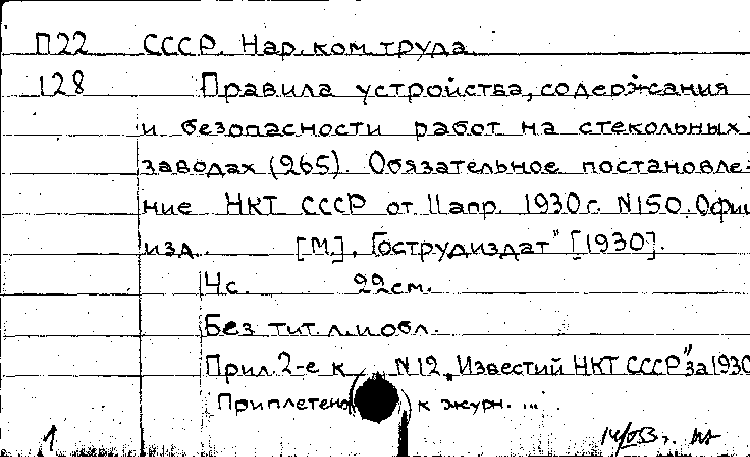 П22 СССР. Нар. ком. труда
128 Правила устройства, содержания
и безопасности работ на стекольных
заводах (265). Обязательное постановле-
ние НКТ СССР от 11 апр. 1930 г. N150. Офиц
изд. [М.], "Гострудиздат" [1930].
4 с. 22 см.
Без тит. л. и обл.
Прил. 2-е к N12 "Известий НКТ СССР" за 1930
Приплетено к журн. ...
1